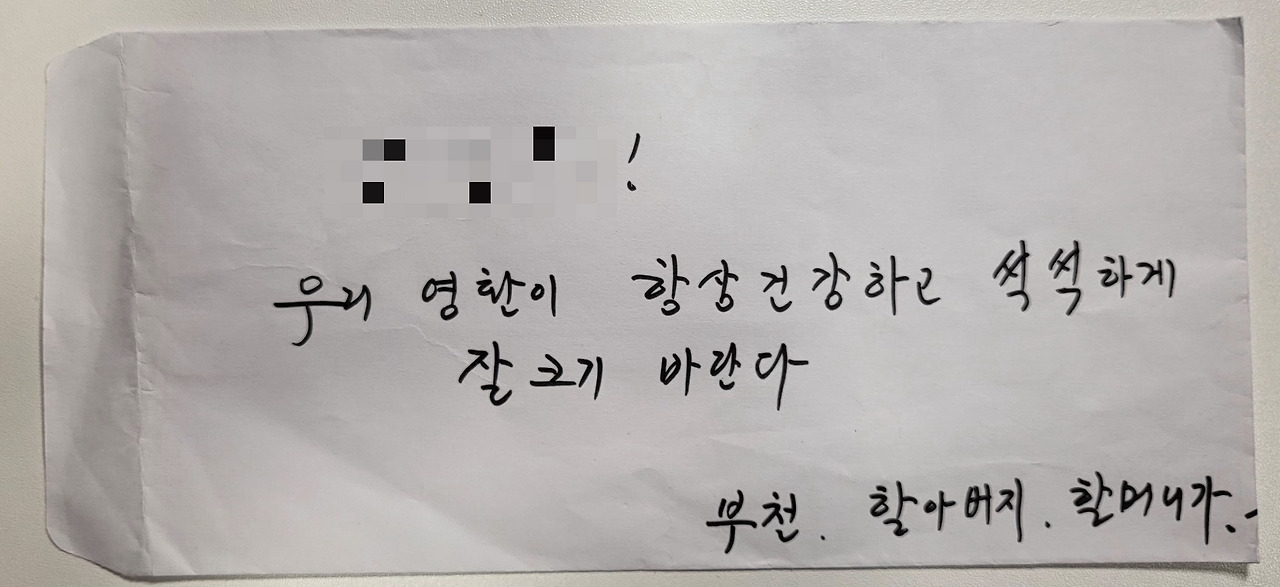 !
우리 영환이 항상 건강하고 씩씩하게
잘 크기 바란다
부천. 할아버지. 할머니가.